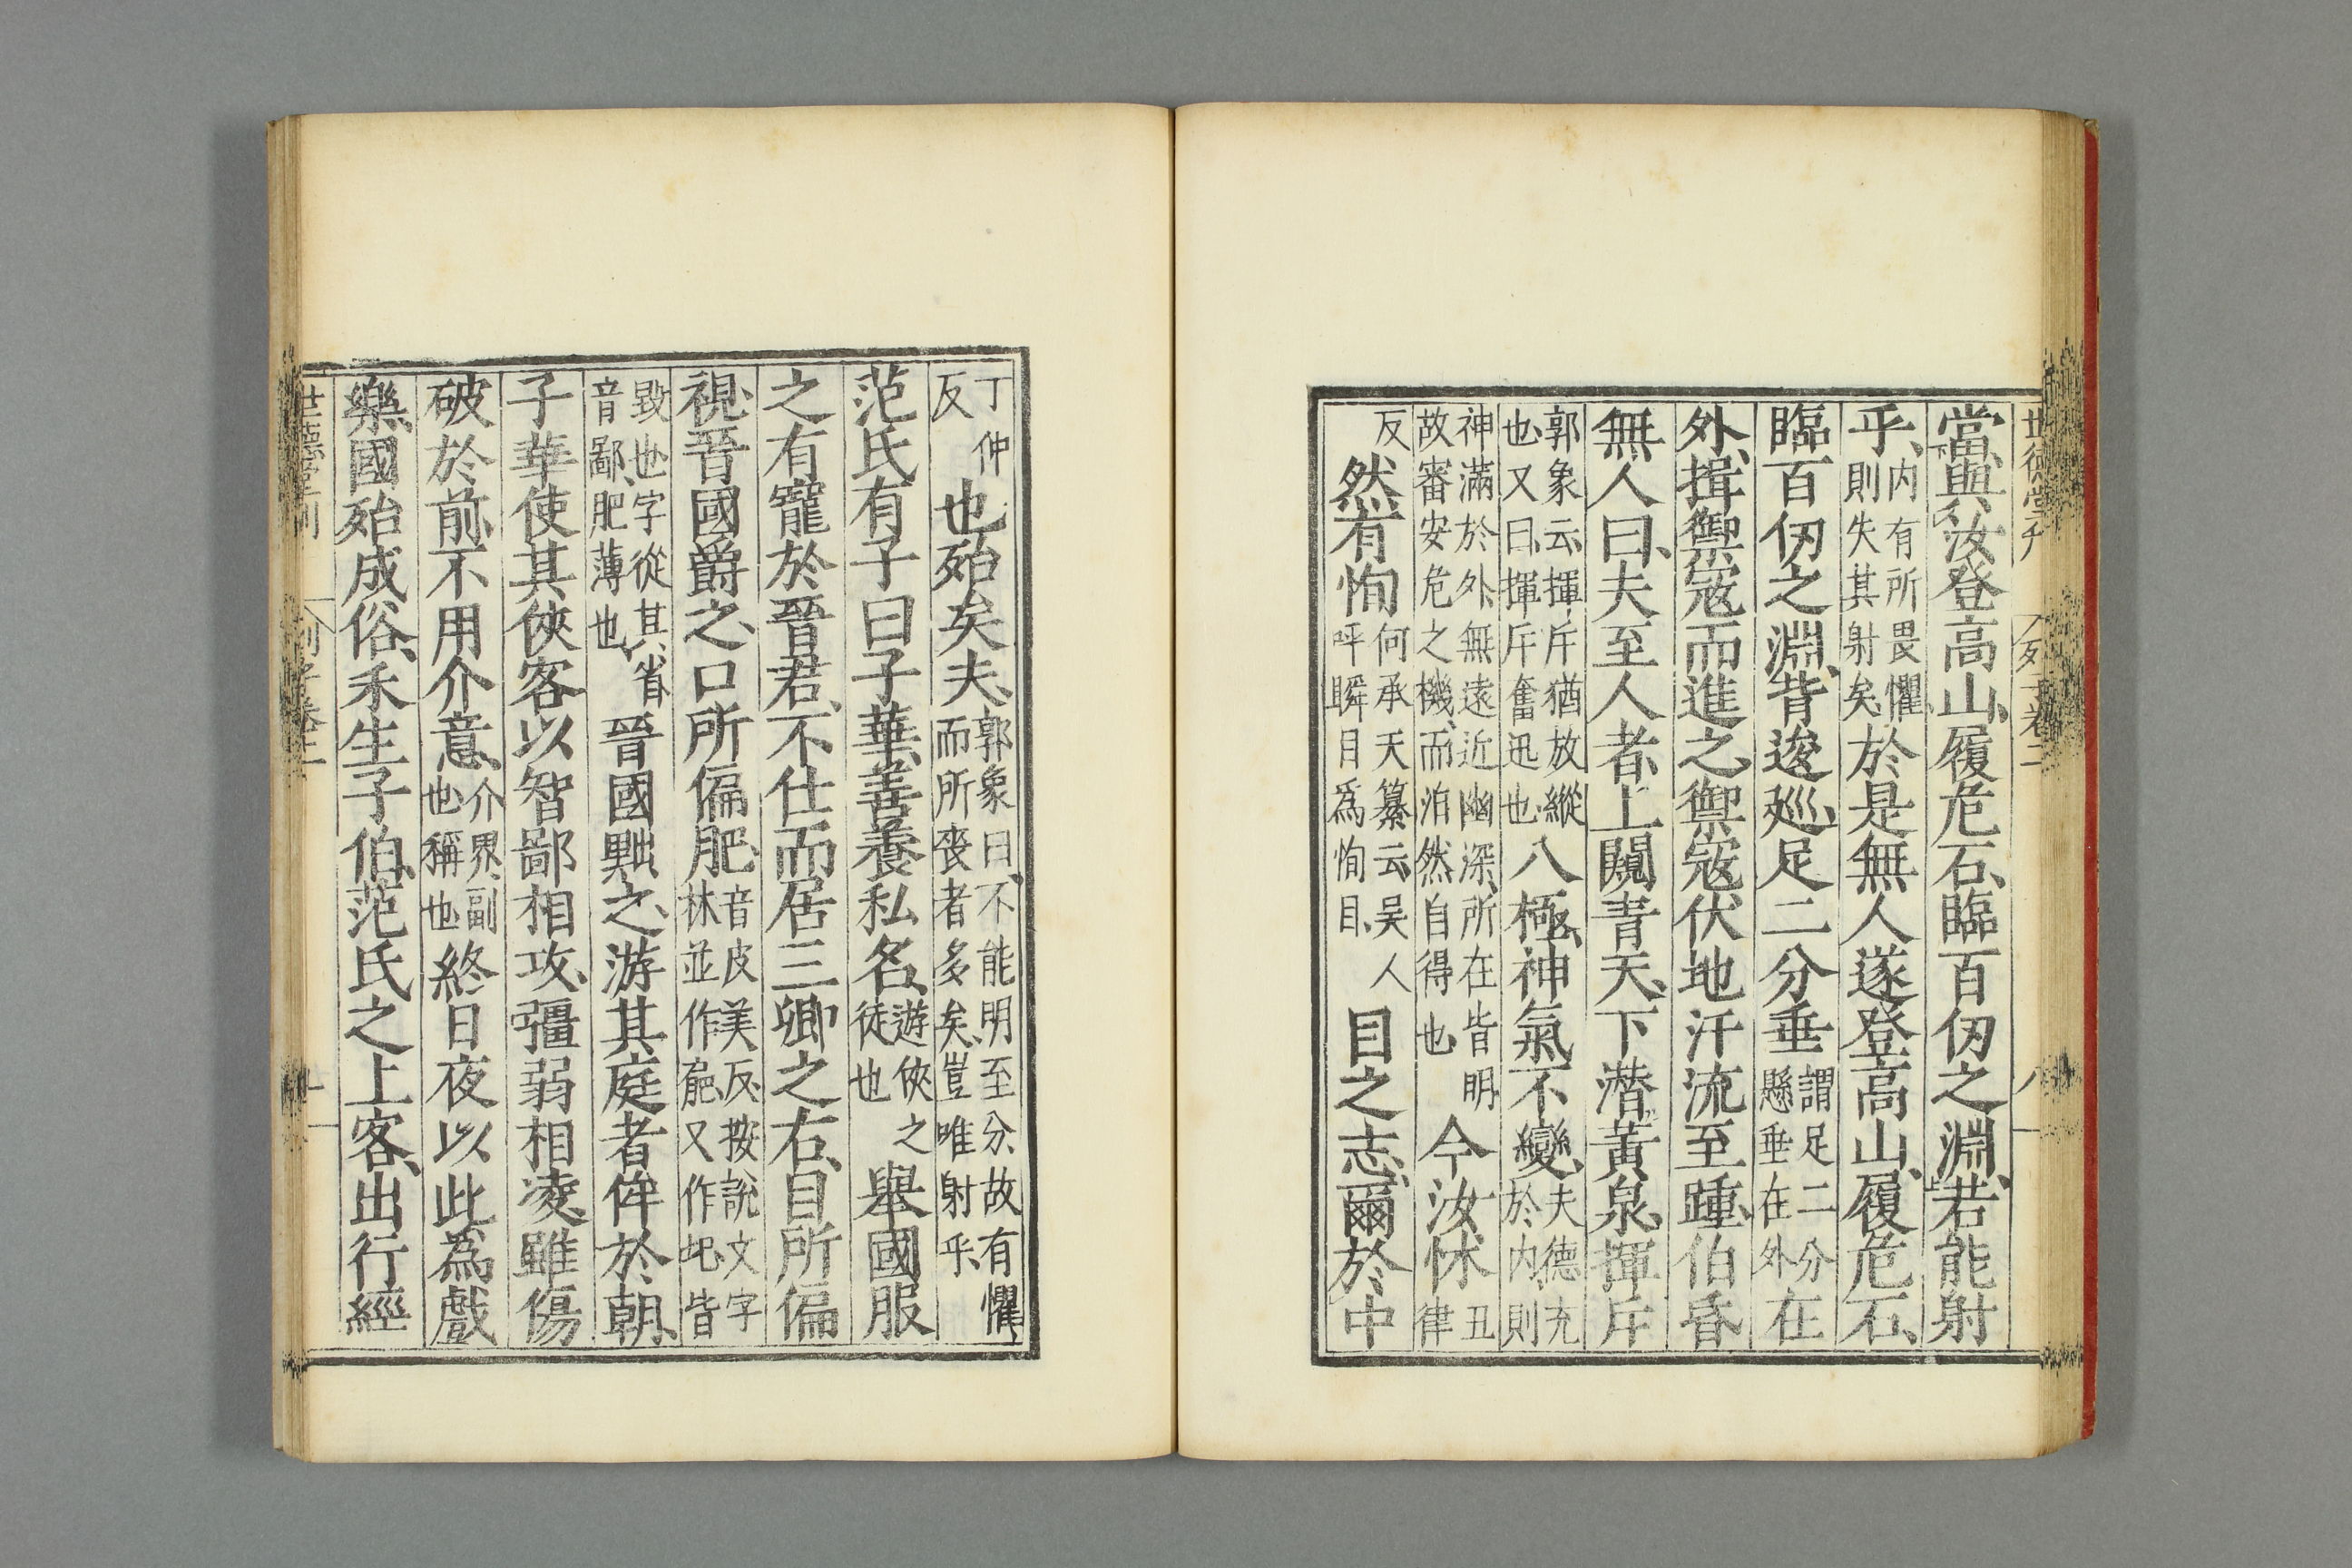 當與汝登高山履危石臨百仞之淵若能射
乎内有所畏懼則失其射矣於是無人遂登高山履危石
臨百仞之淵背逡巡足二分垂謂足二分懸垂在外在
外揖禦寇而進之禦寇伏地汗流至踵伯昏
無人曰夫至人者上闚青天下潛黃泉揮斥
郭象云揮斥猶放縱也又曰揮斥奮迅也八極神氣不變夫德充於内則
神滿於外無遠近幽深所在皆明故審安危之機而泊然自得也今汝怵丑律
反然有恂何承天纂云吴人呼瞬目爲恂目目之志爾於中
世德堂刊
列子卷二
八
丁仲反也殆矣夫郭象曰不能明至分故有懼而所喪者多矣豈唯射乎
范氏有子曰子華善養私名遊俠之徒也舉國服
之有寵於晉君不仕而居三卿之右目所偏
視晉國爵之口所偏肥音皮美反按說文字林並作𦚢又作圮皆
毀也字從其省音鄙肥薄也晉國黜之游其庭者侔於朝
子華使其俠客以智鄙相攻彊弱相凌雖傷
破於前不用介意介界副也稱也終日夜以此爲戲
樂國殆成俗禾生子伯范氏之上客出行經
世德堂刊
列子卷二